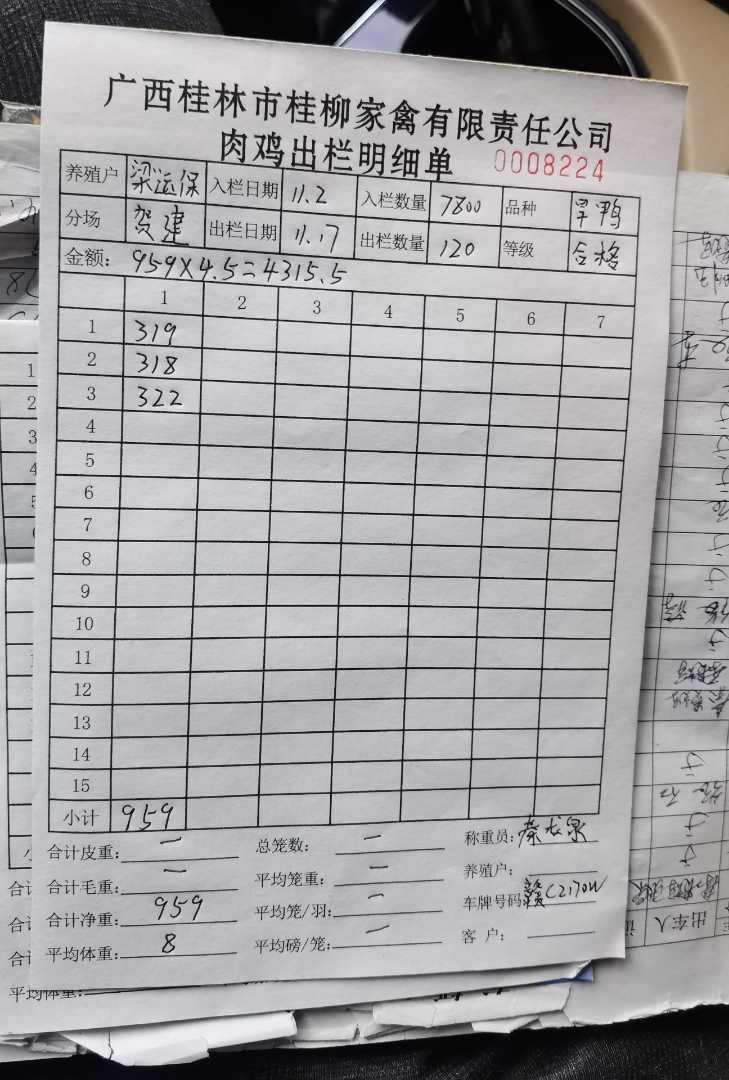 广西桂林市桂柳家禽有限责任公司
肉鸡出栏明细单 0008224
养殖户 梁运保 入栏日期 11.2 入栏数量 7800 品种 旱鸭
分场 贺建 出栏日期 11.17 出栏数量 120 等级 合格
金额: 959×4.5=4315.5
1 2 3 4 5 6 7
1 319
2 318
3 322
4
5
6
7
8
9
10
11
12
13
14
15
小计 959
合计皮重: — 总笼数: — 称重员: 秦龙泉
合计毛重: — 平均笼重: — 养殖户:
合计净重: 959 平均笼/羽: — 车牌号码 赣C2170W
平均体重: 8 平均磅/笼: — 客 户:
平均体重:
出车人